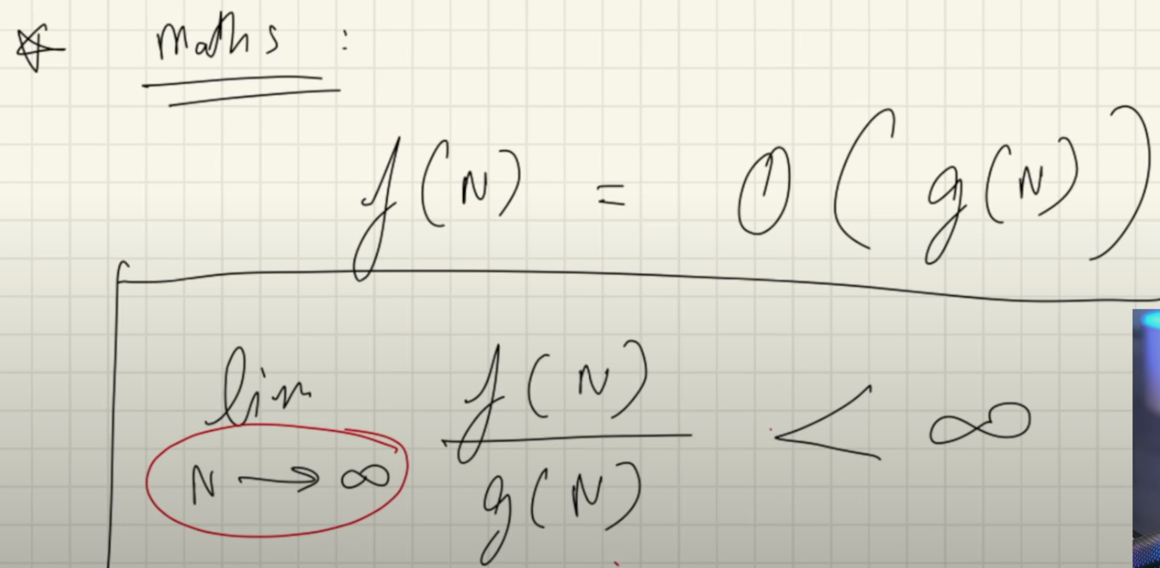 ☆ maths :
f(N) = O(g(N))
lim f(N) < ∞
N → ∞ g(N)